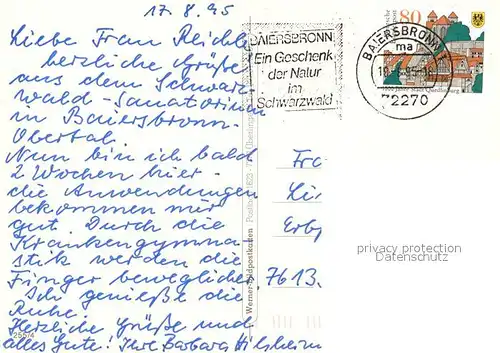 17.8.95
Liebe Frau Reichle
herzliche Grüße
aus dem Schwarz-
wald-Sanatorium
in Baiersbronn-
Obertal.
Nun bin ich bald
2 Wochen hier -
die Anwendungen
bekommen mir
gut. Durch die
Krankengymna-
stik werden die
Finger beweglicher.
Ich genieße die
Ruhe.
Herzliche Grüße und
alles Gute! Ihre Barbara
BAIERSBRONN
Ein Geschenk
der Natur
im
Schwarzwald
80
BAIERSBRONN 1
ma
72270
Werner-Feldpostkarten
Fra
Erb
7613
privacy protection
Datenschutz
255/4